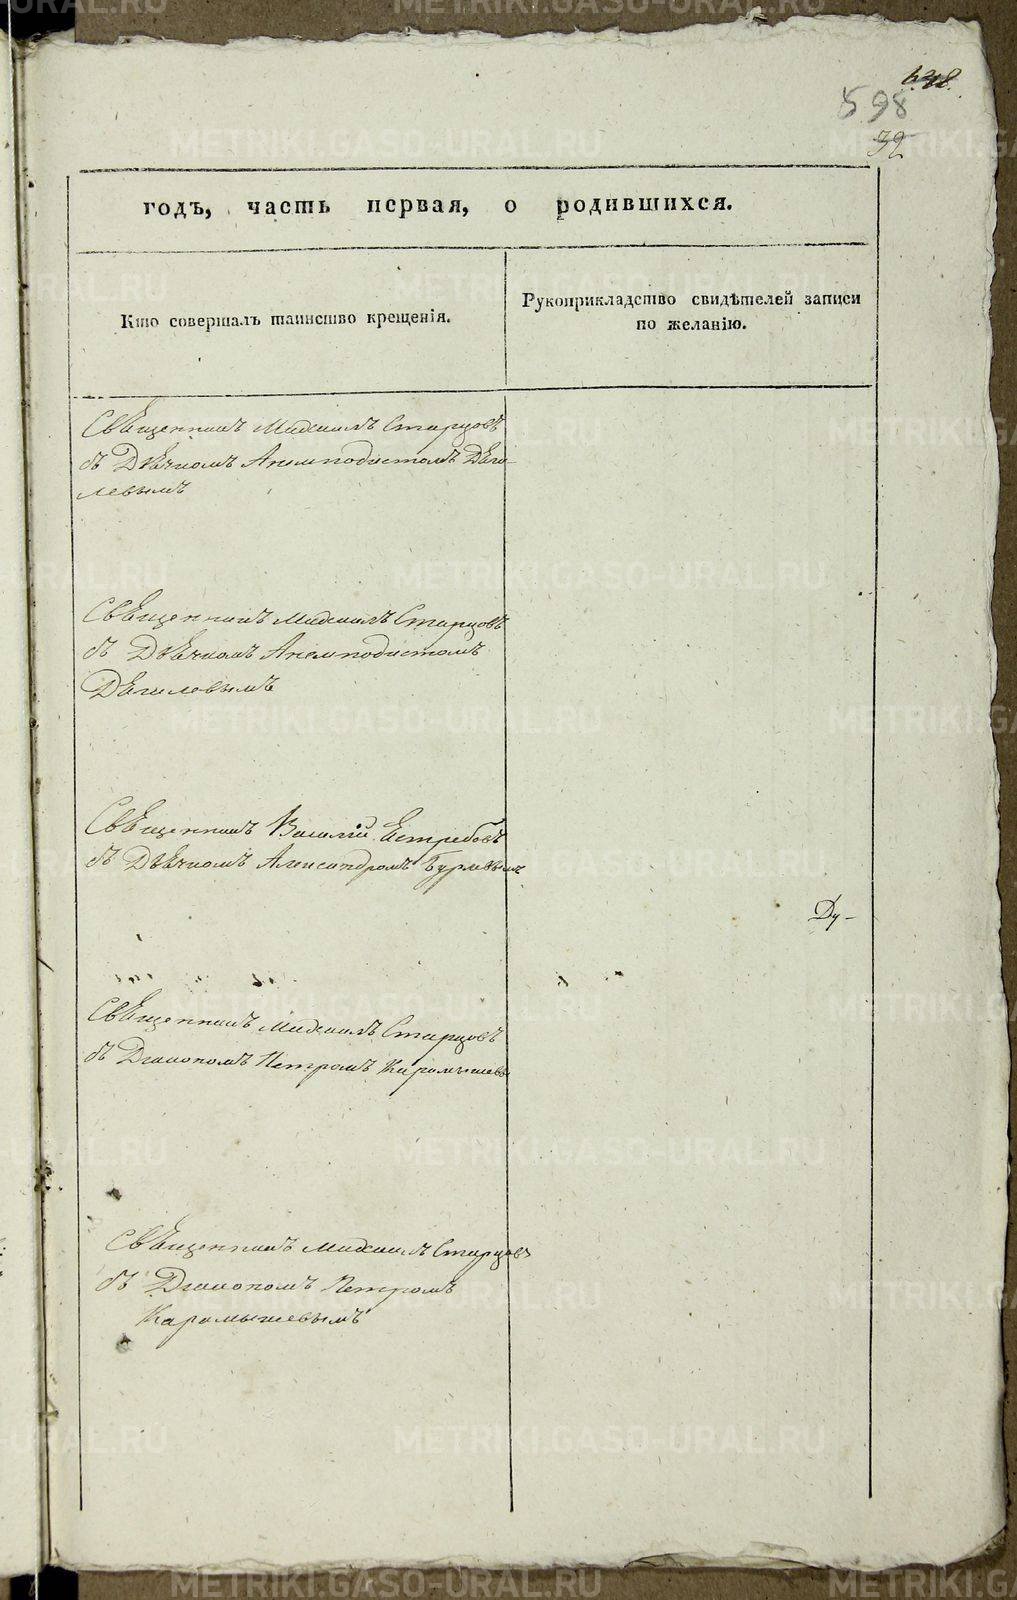 598
32
годъ, часть первая, о родившихся.
Кто совершалъ таинство крещенія.
Рукоприкладство свидѣтелей записи
по желанію.
Священникъ Михаилъ Старцовъ
съ Дьячкомъ Анемподистомъ Дяги-
левымъ
Священникъ Михаилъ Старцовъ
съ Дьячкомъ Анемподистомъ
Дягилевымъ
Священникъ Василій Ястребовъ
съ Дьячкомъ Александромъ
Ду-
Священникъ Михаилъ Старцовъ
съ Діакономъ Петромъ
Священникъ Михаилъ Старцовъ
съ Діакономъ Петромъ
Карамышевымъ
METRIKI.GASO-URAL.RU